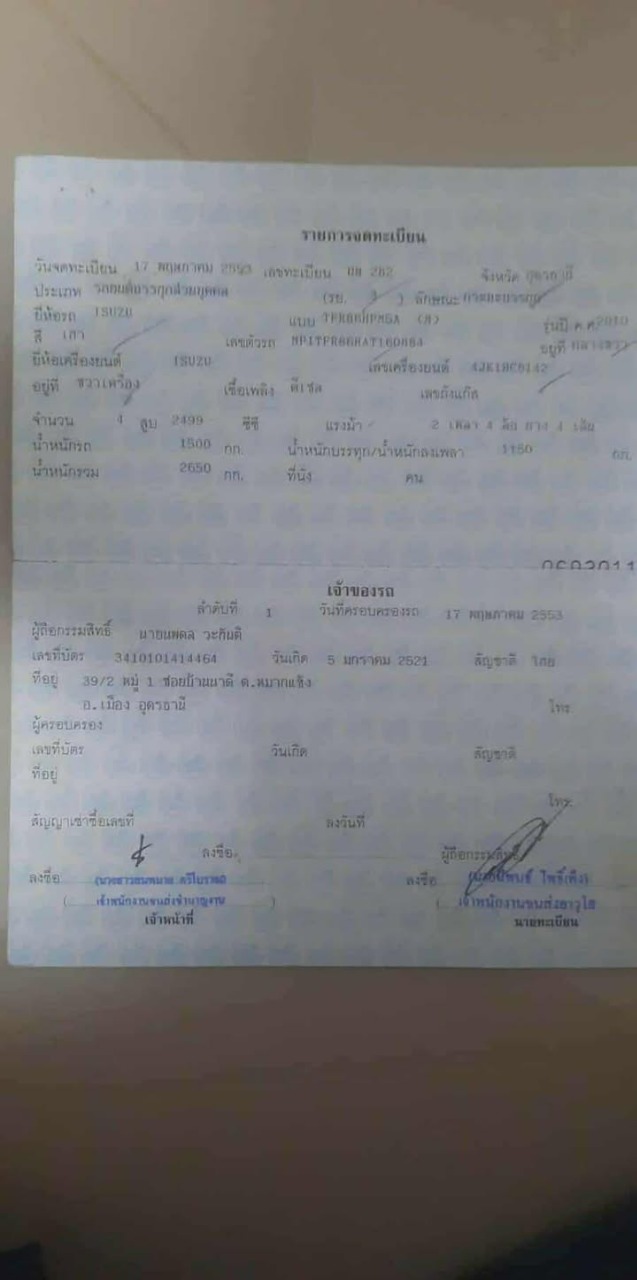 รายการจดทะเบียน
วันจดทะเบียน 17 พฤษภาคม 2553 เลขทะเบียน 282 จังหวัด อุดรธานี
ประเภท รถยนต์บรรทุกส่วนบุคคล (รย. 3 ) ลักษณะ กระบะบรรทุก
ยี่ห้อรถ ISUZU แบบ รุ่นปี ค.ศ. 2010
สี เทา เลขตัวรถ อยู่ที่
ยี่ห้อเครื่องยนต์ ISUZU เลขเครื่องยนต์
อยู่ที่ ขวาเครื่อง เชื้อเพลิง ดีเซล เลขถังแก๊ส
จำนวน 4 สูบ 2499 ซีซี แรงม้า 2 เพลา 4 ล้อ ยาง 4 เส้น
น้ำหนักรถ 1500 กก. น้ำหนักบรรทุก/น้ำหนักลงเพลา 1150 กก.
น้ำหนักรวม 2650 กก. ที่นั่ง คน
เจ้าของรถ
ลำดับที่ 1 วันที่ครอบครองรถ 17 พฤษภาคม 2553
ผู้ถือกรรมสิทธิ์ นายนพดล
เลขที่บัตร 3410101414464 วันเกิด 5 มกราคม 2521 สัญชาติ ไทย
ที่อยู่ 39/2 หมู่ 1 ซอยบ้านนาดี ต.หมากแข้ง
อ.เมือง อุดรธานี โทร.
ผู้ครอบครอง
เลขที่บัตร วันเกิด สัญชาติ
ที่อยู่
โทร.
สัญญาเช่าซื้อเลขที่ ลงวันที่
ลงชื่อ ผู้ถือกรรมสิทธิ์
ลงชื่อ ลงชื่อ
( เจ้าพนักงานขนส่งชำนาญงาน ) ( เจ้าพนักงานขนส่งอาวุโส
เจ้าหน้าที่ นายทะเบียน